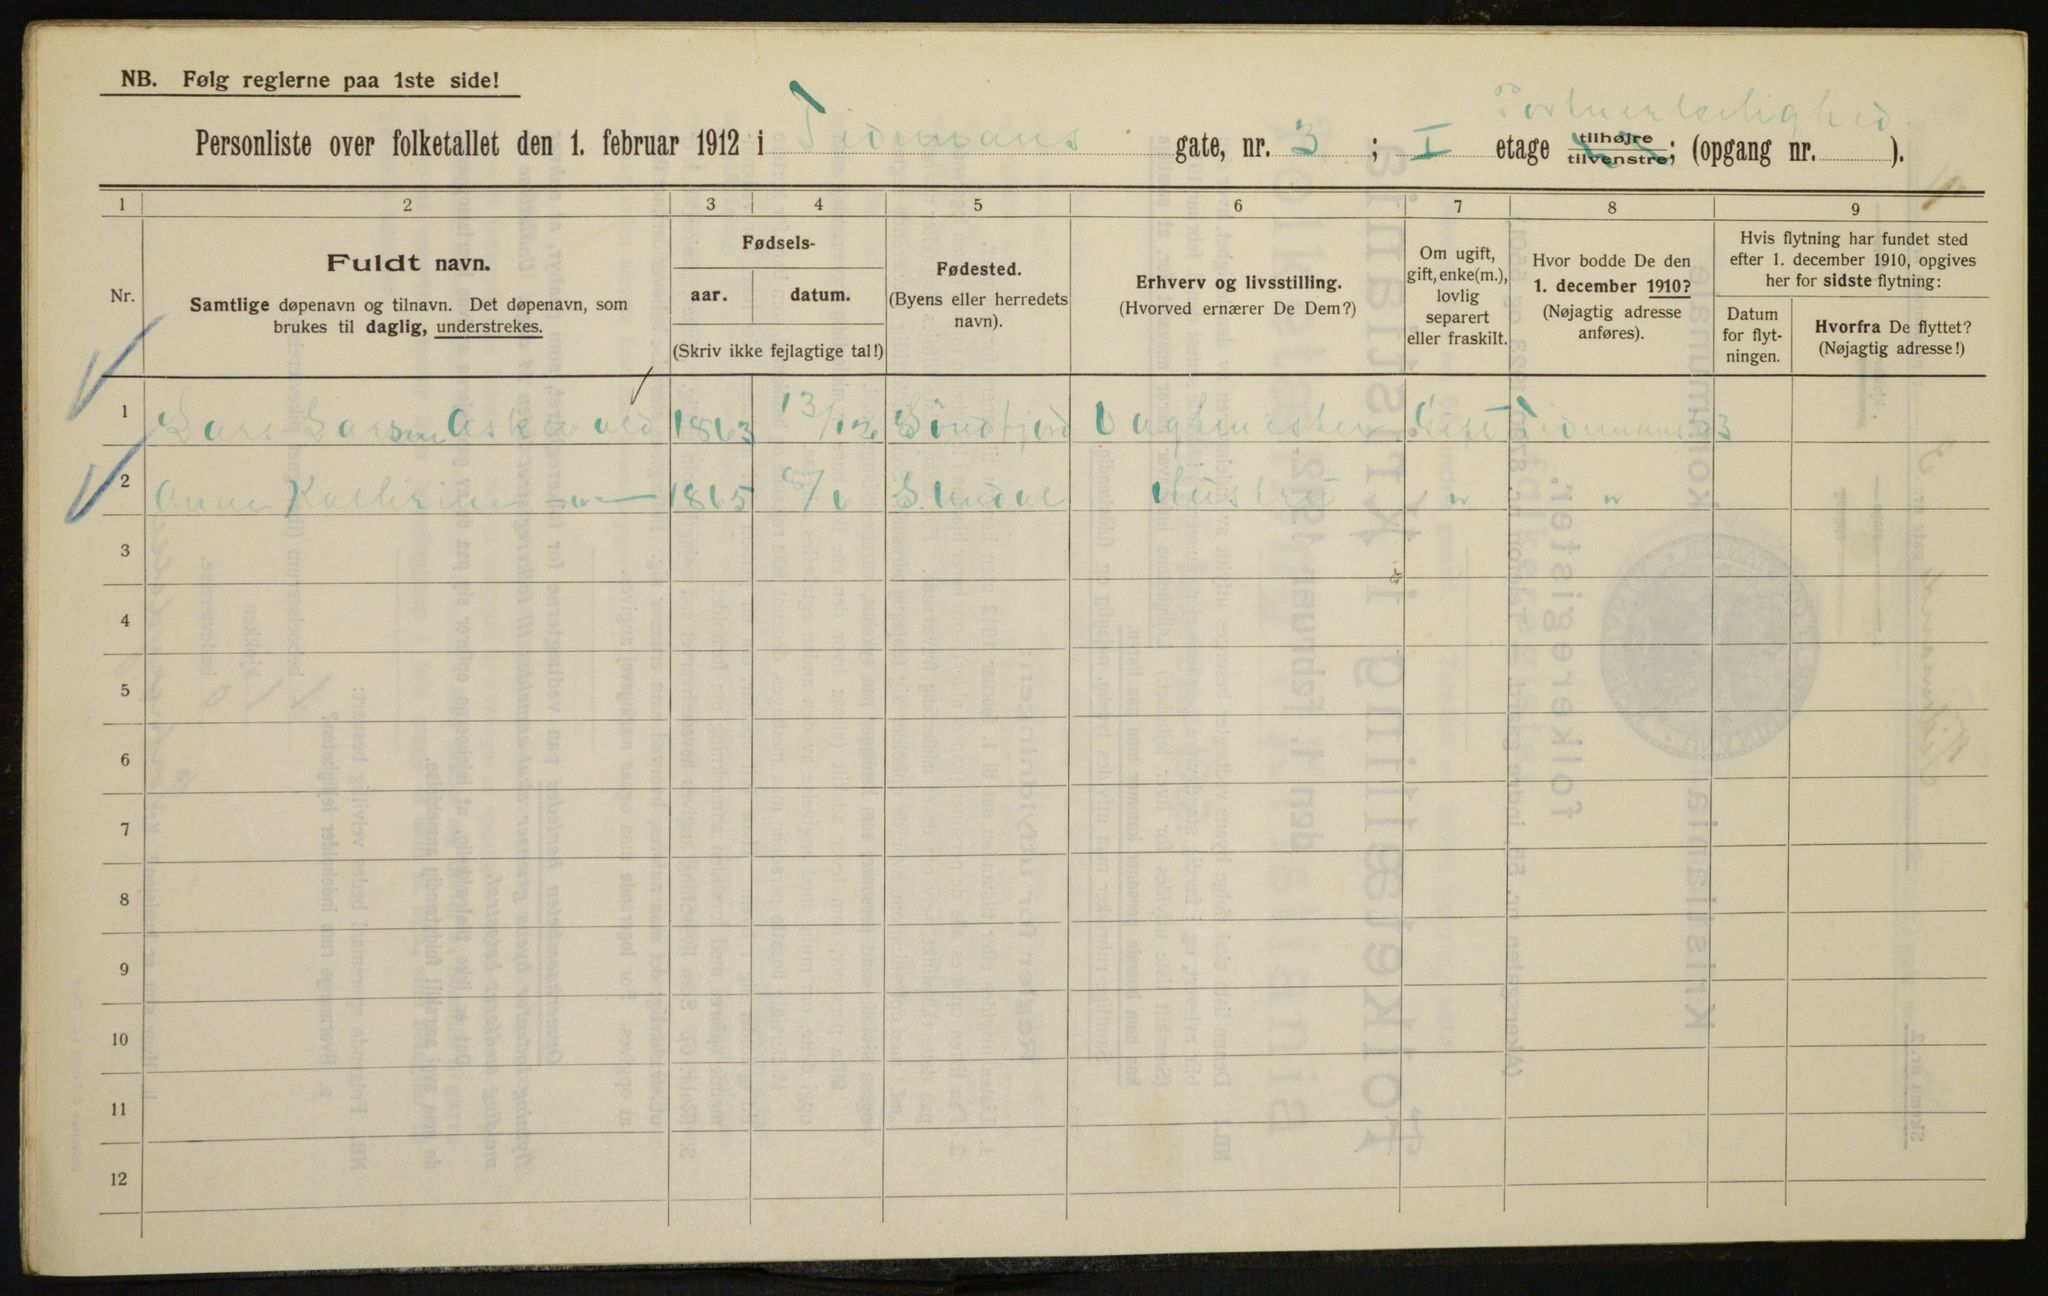 NB. Følg reglerne paa 1ste side!
Personliste over folketallet den 1. februar 1912 i Tidemans gate, nr. 3 ; I etage tilhøjre tilvenstre; (opgang nr. ).
1 2 3 4 5 6 7 8 9
Nr.
Fuldt navn.
Samtlige døpenavn og tilnavn. Det døpenavn, som
brukes til daglig, understrekes.
Fødsels-
aar. datum.
(Skriv ikke fejlagtige tal!)
Fødested.
(Byens eller herredets
navn).
Erhverv og livsstilling.
(Hvorved ernærer De Dem?)
Om ugift,
gift, enke(m.),
lovlig
separert
eller fraskilt.
Hvor bodde De den
1. december 1910?
(Nøjagtig adresse
anføres).
Hvis flytning har fundet sted
efter 1. december 1910, opgives
her for sidste flytning:
Datum
for flyt-
ningen.
Hvorfra De flyttet?
(Nøjagtig adresse!)
1 Lars Larsen Askevold 1863 13/12 Søndfjord Vagtmester Gift Tidemansg 3
2 Anne Kathrine — 1865 8/6 Hustru " "
3
4
5
6
7
8
9
10
11
12